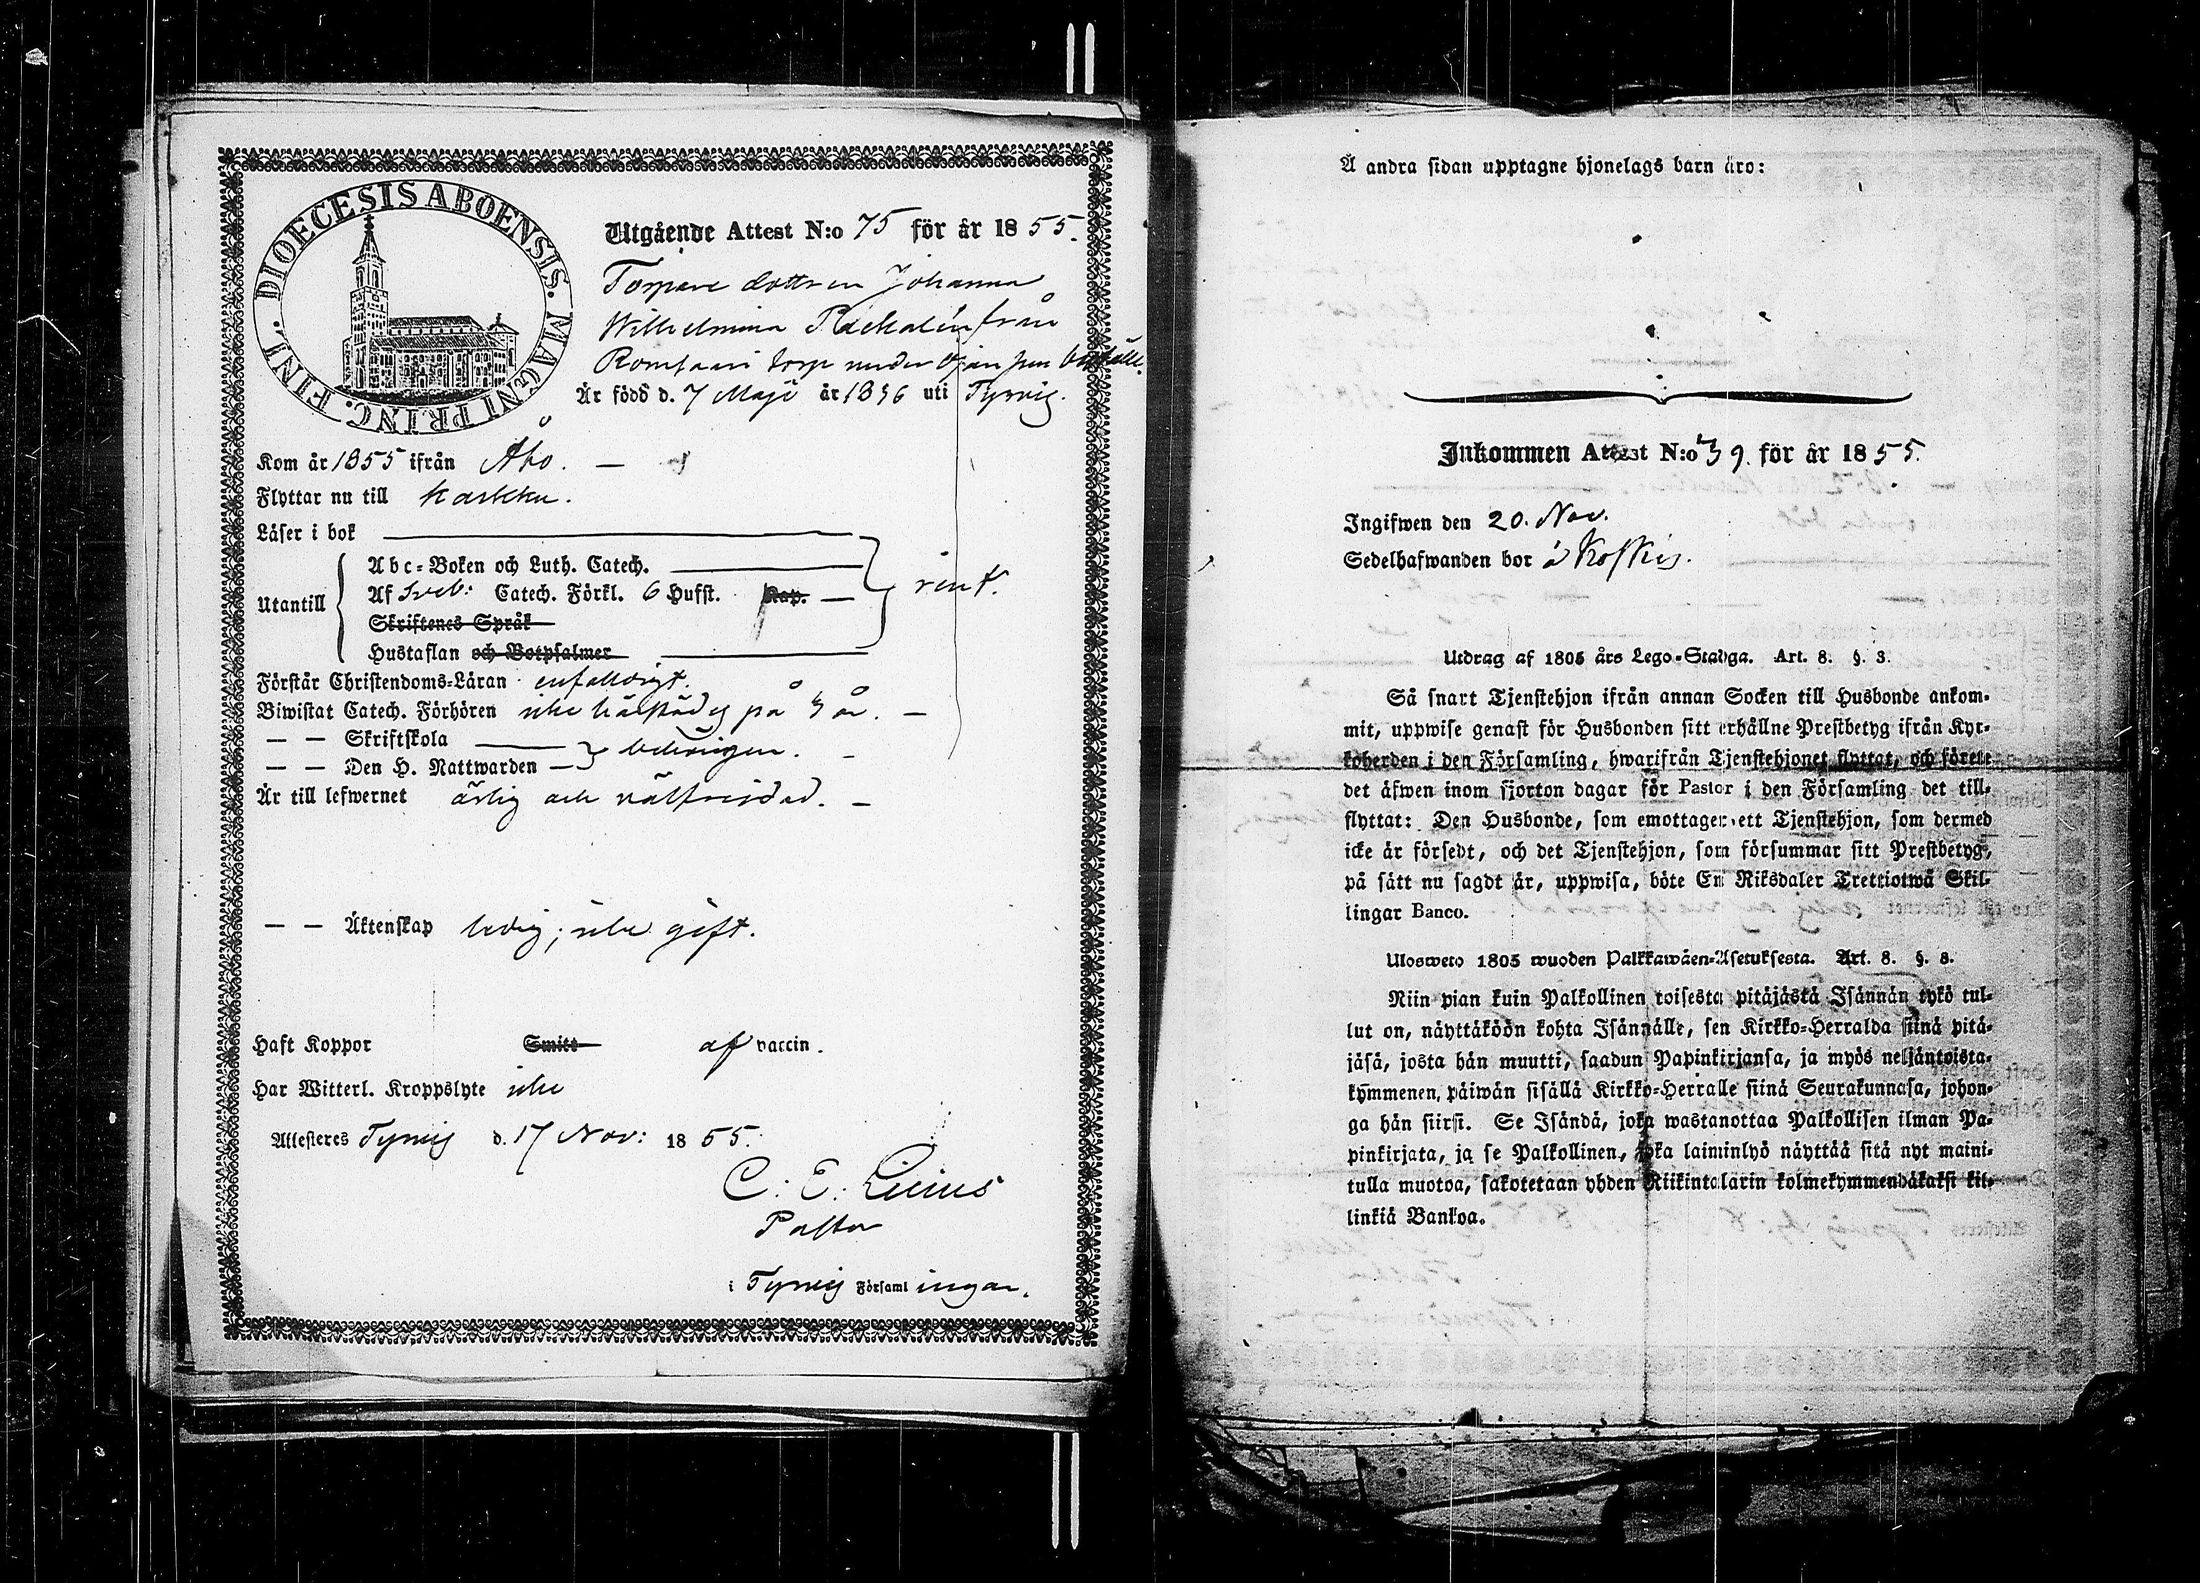 DIOECESIS ABOENSIS. MAGNI PRINC. FINL.
Utgående Attest N:o 75 för år 1855.
Torpare dottren Johanna
Wilhelmina från
Romsaari torp under Ojanpen
Är född d. 7 Maji år 1836 uti Tyrvis.
Kom år 1855 ifrån Åbo. —
Flyttar nu till Karkku.
Läser i bok
Utantill
Abc-Boken och Luth. Catech.
Af Sveb: Catech. Förkl. 6 Hufst. Kap. —
rent.
Skriftenes Språk
Hustaflan och Botpsalmer
Förstår Christendoms-Läran enfalldigt.
Biwistat Catech. Förhören icke härstädes på 3 år. —
— — Skriftskola
— — Den H. Nattwarden — behörigen. —
Är till lefwernet ärlig och välfrejdad. —
— — Äktenskap ledig; icke gift.
Haft Koppor Smitt af vaccin.
Har Witterl. Kroppslyte icke
Attesteres Tyrvis d. 17 Nov: 1855.
C. E. Lilius
Pastor
i Tyrvis Församlingar.
Å andra sidan upptagne hjonelags barn äro:
Inkommen Attest N:o 39. för år 1855.
Ingifwen den 20. Nov.
Sedelhafwanden bor å Koskis.
Utdrag af 1805 års Lego-Stadga. Art. 8. §. 3.
Så snart Tjenstehjon ifrån annan Socken till Husbonde ankom-
mit, uppwise genast för Husbonden sitt erhållne Prestbetyg ifrån Kyr-
koherden i den Församling, hwarifrån Tjenstehjonet flyttat, och förete
det äfwen inom fjorton dagar för Pastor i den Församling det till-
flyttat: Den Husbonde, som emottager ett Tjenstehjon, som dermed
icke är försedt, och det Tjenstehjon, som försummar sitt Prestbetyg,
på sätt nu sagdt är, uppwisa, böte En Riksdaler Trettiotwå Skil-
lingar Banco.
Ulosweto 1805 wuoden Palkkawäen-Asetuksesta. Art. 8. §. 3.
Niin pian kuin Palkollinen toisesta pitäjästä Isännän tykö tul-
lut on, näyttäköön kohta Isännälle, sen Kirkko-Herralda siinä pitä-
jäsä, josta hän muutti, saadun Papinkirjansa, ja myös neljäntoista-
kymmenen päiwän sisällä Kirkko-Herralle siinä Seurakunnasa, johon-
ga hän siirsi. Se Isändä, joka wastanottaa Palkollisen ilman Pa-
pinkirjata, ja se Palkollinen, joka laiminlyö näyttää sitä nyt maini-
tulla muotoa, sakotetaan yhden Riikintalarin kolmekymmendäkaksi kil-
linkiä Bankoa.